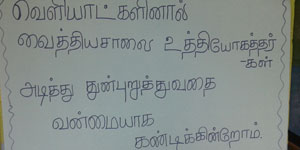 வெளியாட்களினால்
வைத்தியசாலை உத்தியோகத்தர்
-கள்
அடித்து துன்புறுத்துவதை
வன்மையாக
கண்டிக்கின்றோம்.